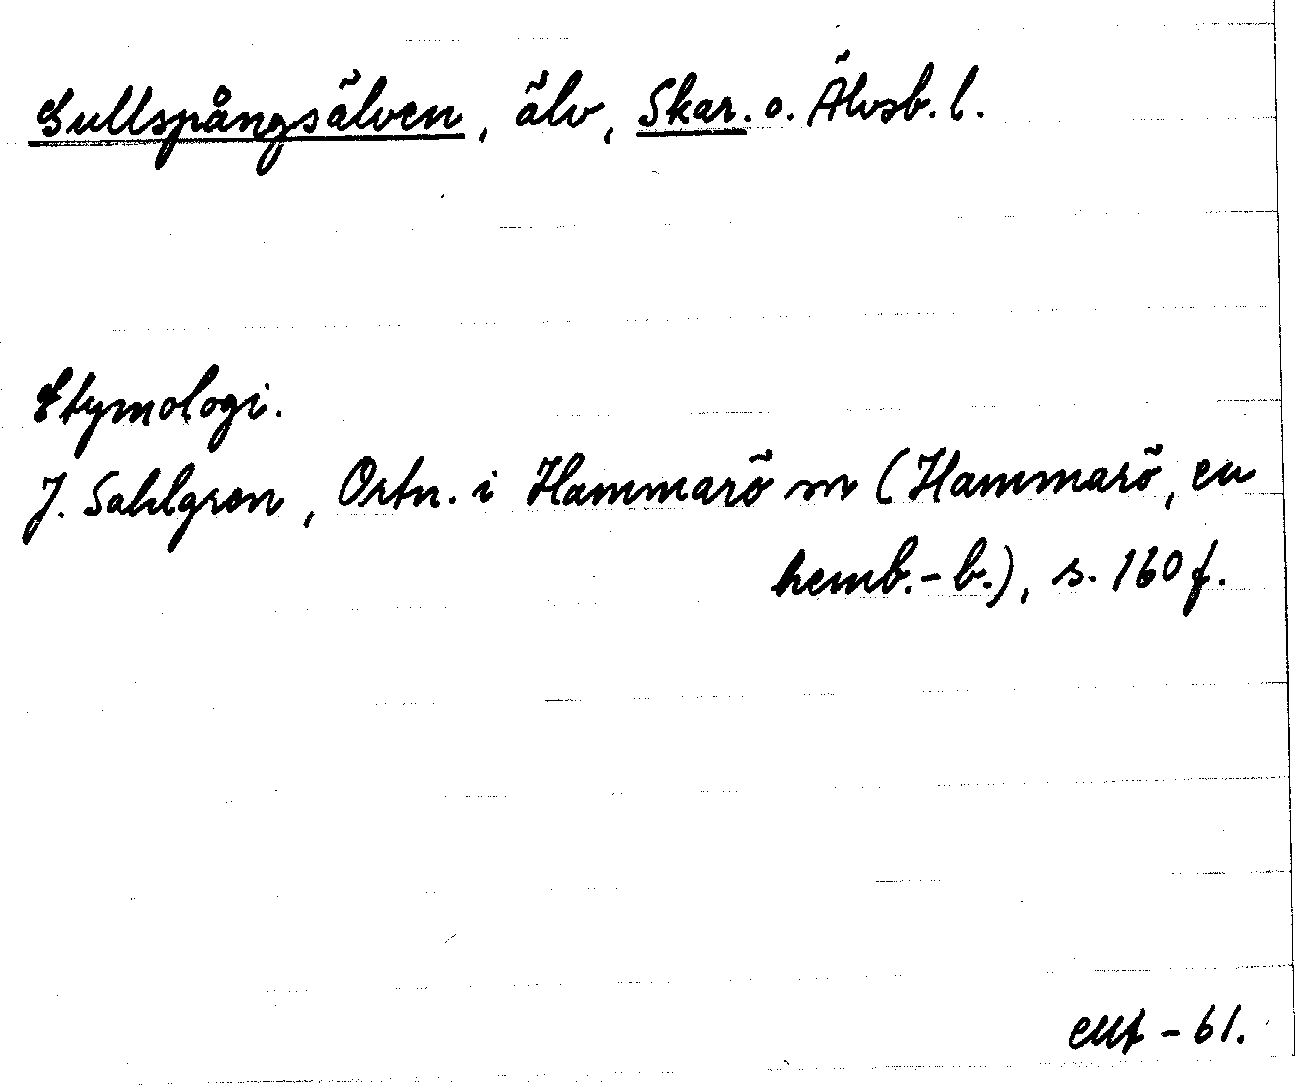 Gullspångsälven, älv, Skar. o. Älvsb. l.
Etymologi.
J. Sahlgren, Ortn. i Hammarö sn (Hammarö, en
hemb.-b.), s. 160 f.
-61.